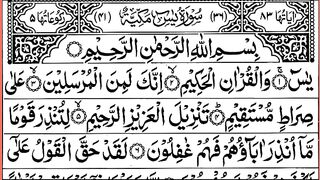 اٰیاتھا ۸۳ (۳۶) سُوْرَةُ یٰسٓ مَكِّیَّةٌ (۴۱) رکوعاتھا ۵
بِسْمِ اللّٰهِ الرَّحْمٰنِ الرَّحِیْمِ
یٰسٓ ۚ﴿۱﴾ وَالْقُرْاٰنِ الْحَكِیْمِ ۙ﴿۲﴾ اِنَّكَ لَمِنَ الْمُرْسَلِیْنَ ۙ﴿۳﴾ عَلٰی
صِرَاطٍ مُّسْتَقِیْمٍ ؕ﴿۴﴾ تَنْزِیْلَ الْعَزِیْزِ الرَّحِیْمِ ۙ﴿۵﴾ لِتُنْذِرَ قَوْمًا
مَّاۤ اُنْذِرَ اٰبَآؤُهُمْ فَهُمْ غٰفِلُوْنَ ﴿۶﴾ لَقَدْ حَقَّ الْقَوْلُ عَلٰۤی